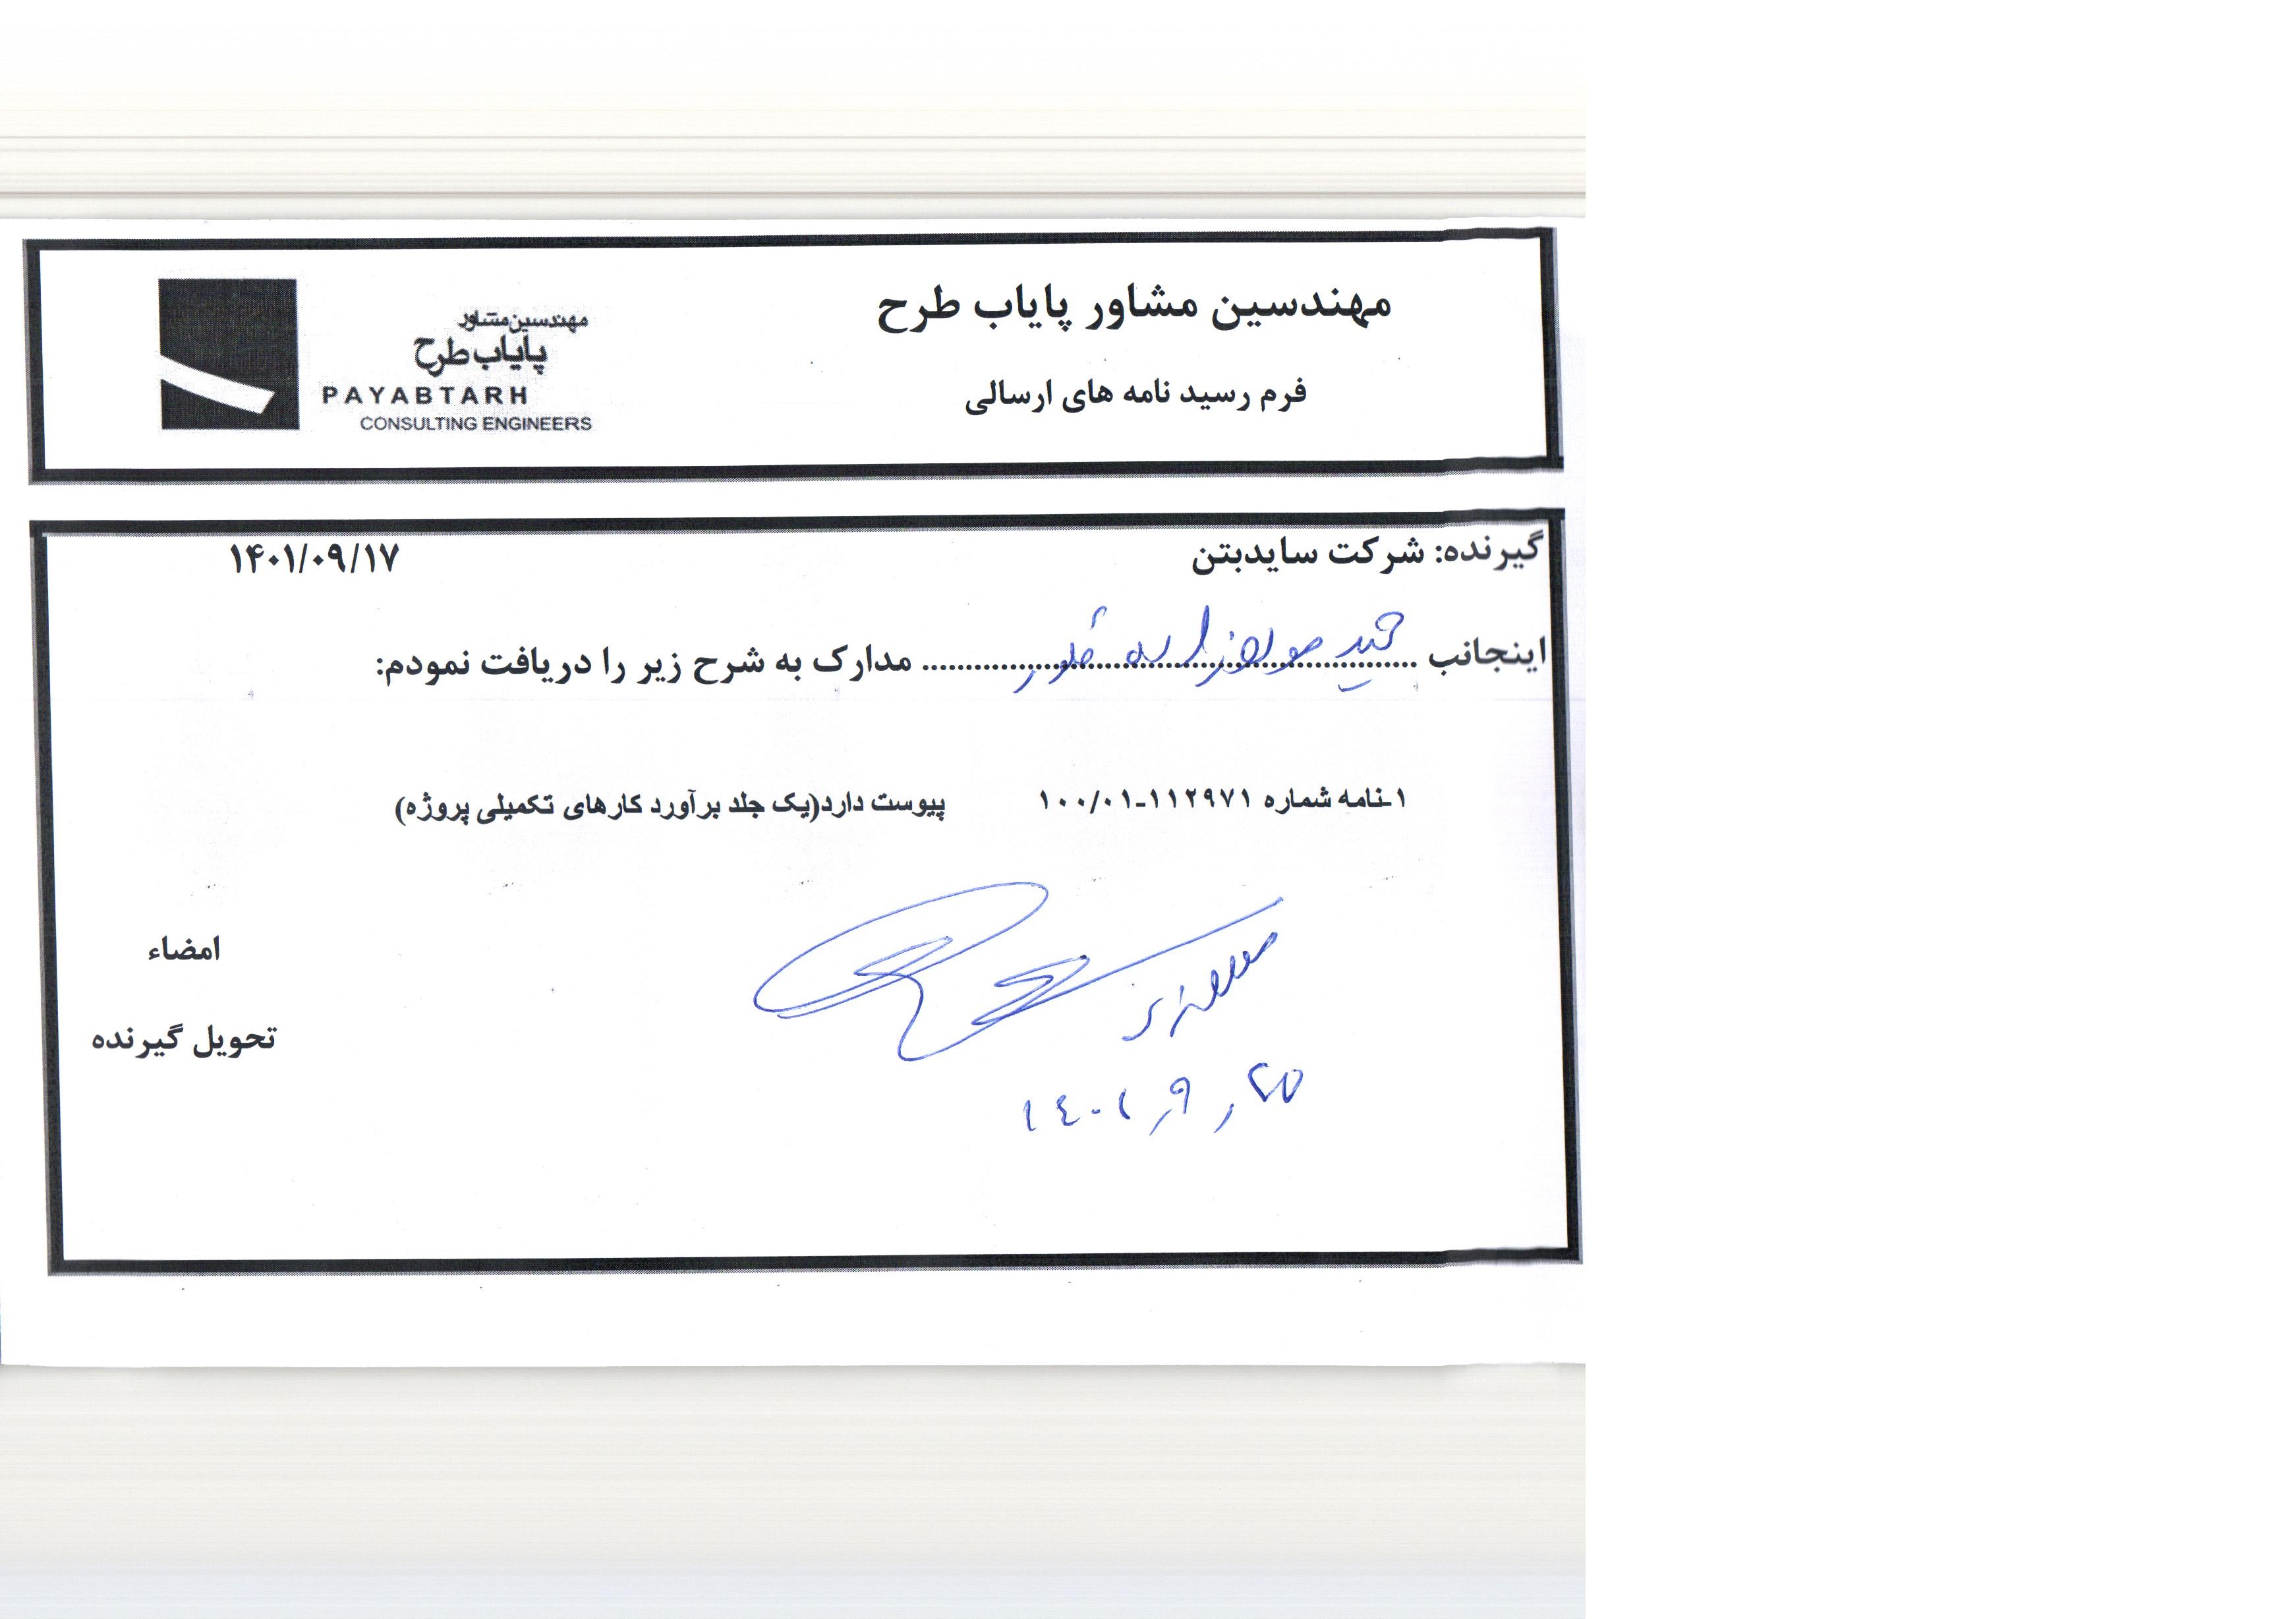 مهندسین مشاور پایاب طرح
فرم رسید نامه های ارسالی
مهندسین مشاور
پایاب طرح
PAYABTARH
CONSULTING ENGINEERS
گیرنده: شرکت سایدبتن
۱۴۰۱/۰۹/۱۷
اینجانب مدارک به شرح زیر را دریافت نمودم:
۱-نامه شماره ۱۱۲۹۷۱-۱۰۰/۰۱ پیوست دارد(یک جلد برآورد کارهای تکمیلی پروژه)
امضاء
تحویل گیرنده